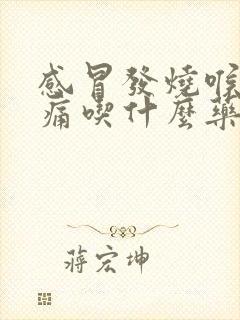 感冒發燒喉
痛喫什麼藥
蔣宏坤